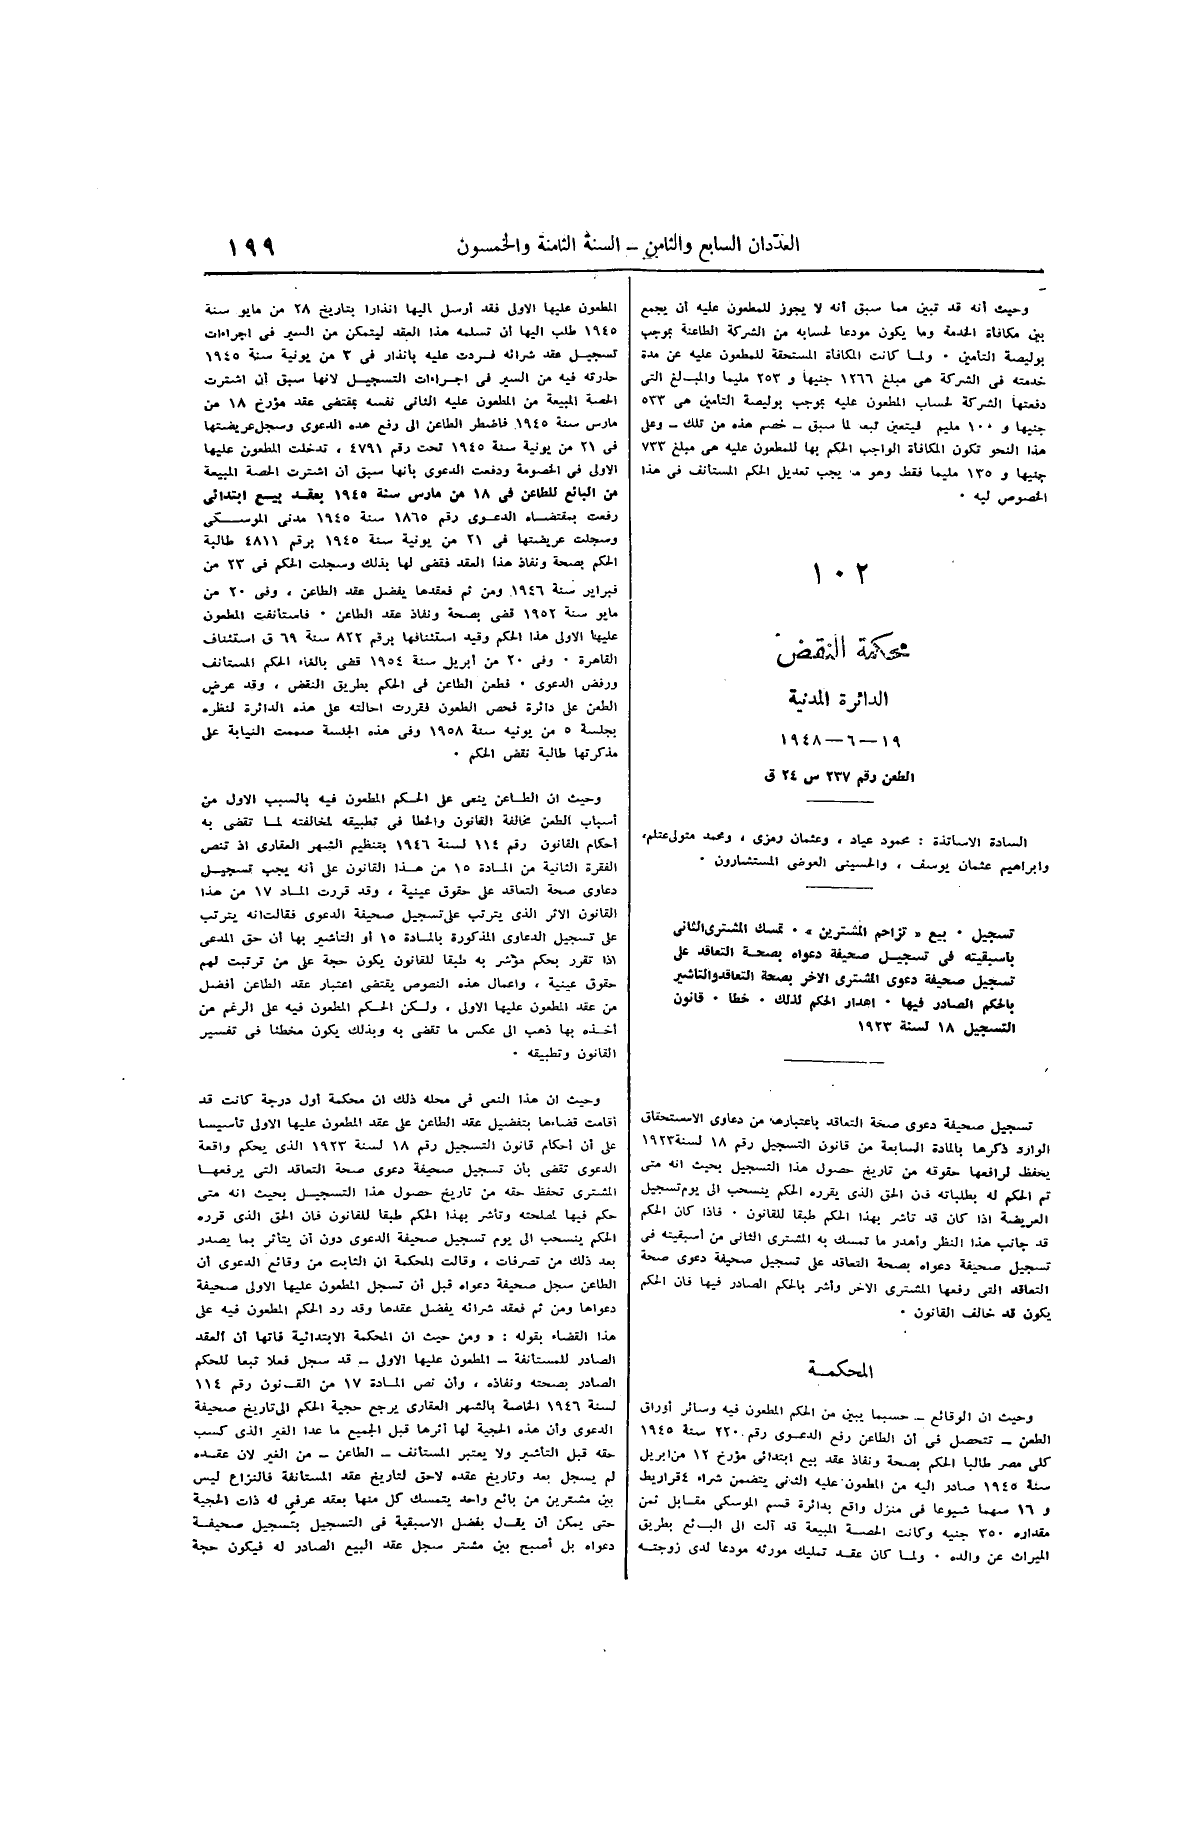 العددان السابع والثامن – السنة الثامنة والخمسون
١٩٩
وحيث أنه قد تبين مما سبق أنه لا يجوز للمطعون عليه أن يجمع
بين مكافاة الخدمة وما يكون مودعا لحسابه من الشركة الطاعنة بموجب
بوليصة التأمين ٠ ولما كانت المكافاة المستحقة للمطعون عليه عن مدة
خدمته فى الشركة هى مبلغ ١٢٦٦ جنيها و ٢٥٣ مليما والمبلغ التى
دفعتها الشركة لحساب المطعون عليه بموجب بوليصة التأمين هى ٥٣٣
جنيها و ١٠٠ مليم فيتعين تبعا لما سبق – خصم هذه من تلك – وعلى
هذا النحو تكون المكافاة الواجب الحكم بها للمطعون عليه هى مبلغ ٧٣٣
جنيها و ١٣٥ مليما فقط وهو ما يجب تعديل الحكم المستأنف فى هذا
الخصوص ليه ٠
١٠٢
محكمة النقض
الدائرة المدنية
١٩ – ٦ – ١٩٤٨
الطعن رقم ٢٣٧ س ٢٤ ق
السادة الاساتذة : محمود عياد ، وعثمان رمزى ، ومحمد متولى عتلم،
وابراهيم عثمان يوسف ، والحسينى العوضى المستشارون ٠
تسجيل ٠ بيع « تزاحم المشترين » ٠ تمسك المشترى الثانى
باسبقيته فى تسجيل صحيفة دعواه بصحة التعاقد على
تسجيل صحيفة دعوى المشترى الاخر بصحة التعاقد والتأشير
بالحكم الصادر فيها ٠ اهدار الحكم لذلك ٠ خطا ٠ قانون
التسجيل ١٨ لسنة ١٩٢٣
تسجيل صحيفة دعوى صحة التعاقد باعتبارها من دعاوى الاستحقاق
الوارد ذكرها بالمادة السابعة من قانون التسجيل رقم ١٨ لسنة ١٩٢٣
يحفظ لرافعها حقوقه من تاريخ حصول هذا التسجيل بحيث انه متى
تم الحكم له بطلباته فان الحق الذى يقرره الحكم ينسحب الى يوم تسجيل
العريضة اذا كان قد تاشر بهذا الحكم طبقا للقانون ٠ فاذا كان الحكم
قد جانب هذا النظر وأهدر ما تمسك به المشترى الثانى من أسبقيته فى
تسجيل صحيفة دعواه بصحة التعاقد على تسجيل صحيفة دعوى صحة
التعاقد التى رفعها المشترى الاخر وأشر بالحكم الصادر فيها فان الحكم
يكون قد خالف القانون ٠
المحكمة
وحيث ان الوقائع – حسبما يبين من الحكم المطعون فيه وسائر أوراق
الطعن – تتحصل فى أن الطاعن رفع الدعوى رقم ٢٢٠ سنة ١٩٤٥
كلى مصر طالبا الحكم بصحة ونفاذ عقد بيع ابتدائى مؤرخ ١٢ من ابريل
سنة ١٩٤٥ صادر اليه من المطعون عليه الثنى يتضمن شراء ٤ قراريط
و ١٦ سهما شيوعا فى منزل واقع بدائرة قسم الموسكى مقابل ثمن
مقداره ٣٥٠ جنيه وكانت الحصة المبيعة قد آلت الى البائع بطريق
الميراث عن والده ٠ ولما كان عقد تمليك مورثه مودعا لدى زوجته
المطعون عليها الاولى فقد أرسل اليها انذارا بتاريخ ٢٨ من مايو سنة
١٩٤٥ طلب اليها أن تسلمه هذا العقد ليتمكن من السير فى اجراءات
تسجيل عقد شرائه فردت عليه بانذار فى ٣ من يونية سنة ١٩٤٥
حذرته فيه من السير فى اجراءات التسجيل لانها سبق أن اشترت
الحصة المبيعة من المطعون عليه الثانى نفسه بمقتضى عقد مؤرخ ١٨ من
مارس سنة ١٩٤٥ فاضطر الطاعن الى رفع هذه الدعوى وسجل عريضتها
فى ٢١ من يونية سنة ١٩٤٥ تحت رقم ٤٧٩١ ، تدخلت المطعون عليها
الاولى فى الخصومة ودفعت الدعوى بأنها سبق أن اشترت الحصة المبيعة
من البائع للطاعن فى ١٨ من مارس سنة ١٩٤٥ بعقد بيع ابتدائى
رفعت بمقتضاه الدعوى رقم ١٨٦٥ سنة ١٩٤٥ مدنى الموسكى
وسجلت عريضتها فى ٢١ من يونية سنة ١٩٤٥ برقم ٤٨١١ طالبة
الحكم بصحة ونفاذ هذا العقد فقضى لها بذلك وسجلت الحكم فى ٢٣ من
فبراير سنة ١٩٤٦ ومن ثم فعقدها يفضل عقد الطاعن ، وفى ٢٠ من
مايو سنة ١٩٥٢ قضى بصحة ونفاذ عقد الطاعن ٠ فاستأنفت المطعون
عليها الاولى هذا الحكم وقيد استئنافها برقم ٨٢٢ سنة ٦٩ ق استئناف
القاهرة ٠ وفى ٢٠ من أبريل سنة ١٩٥٤ قضى بالغاء الحكم المستأنف
ورفض الدعوى ٠ فطعن الطاعن فى الحكم بطريق النقض ، وقد عرض
الطعن على دائرة فحص الطعون فقررت احالته على هذه الدائرة لنظره
بجلسة ٥ من يونيه سنة ١٩٥٨ وفى هذه الجلسة صممت النيابة على
مذكرتها طالبة نقض الحكم ٠
وحيث ان الطاعن ينعى على الحكم المطعون فيه بالسبب الاول من
أسباب الطعن مخالفة القانون والخطا فى تطبيقه لمخالفته لما تقضى به
أحكام القانون رقم ١١٤ لسنة ١٩٤٦ بتنظيم الشهر العقارى اذ تنص
الفقرة الثانية من المادة ١٥ من هذا القانون على أنه يجب تسجيل
دعاوى صحة التعاقد على حقوق عينية ، وقد قررت الماد ١٧ من هذا
القانون الاثر الذى يترتب على تسجيل صحيفة الدعوى فقالت انه يترتب
على تسجيل الدعاوى المذكورة بالمادة ١٥ أو التأشير بها أن حق المدعى
اذا تقرر بحكم مؤشر به طبقا للقانون يكون حجة على من ترتبت لهم
حقوق عينية ، واعمال هذه النصوص يقتضى اعتبار عقد الطاعن أفضل
من عقد المطعون عليها الاولى ، ولكن الحكم المطعون فيه على الرغم من
أخذه بها ذهب الى عكس ما تقضى به وبذلك يكون مخطئا فى تفسير
القانون وتطبيقه ٠
وحيث ان هذا النعى فى محله ذلك ان محكمة أول درجة كانت قد
أقامت قضاءها بتفضيل عقد الطاعن على عقد المطعون عليها الاولى تأسيسا
على أن أحكام قانون التسجيل رقم ١٨ لسنة ١٩٢٣ الذى يحكم واقعة
الدعوى تقضى بان تسجيل صحيفة دعوى صحة التعاقد التى يرفعها
المشترى تحفظ حقه من تاريخ حصول هذا التسجيل بحيث انه متى
حكم فيها لمصلحته وتأشر بهذا الحكم طبقا للقانون فان الحق الذى قرره
الحكم ينسحب الى يوم تسجيل صحيفة الدعوى دون أن يتأثر بما يصدر
بعد ذلك من تصرفات ، وقالت المحكمة ان الثابت من وقائع الدعوى أن
الطاعن سجل صحيفة دعواه قبل أن تسجل المطعون عليها الاولى صحيفة
دعواها ومن ثم فعقد شرائه يفضل عقدها وقد رد الحكم المطعون فيه على
هذا القضاء بقوله : « ومن حيث ان المحكمة الابتدائية فاتها أن العقد
الصادر للمستأنفة – المطعون عليها الاولى – قد سجل فعلا تبعا للحكم
الصادر بصحته ونفاذه ، وأن نص المادة ١٧ من القانون رقم ١١٤
لسنة ١٩٤٦ الخاصة بالشهر العقارى يرجع حجية الحكم الى تاريخ صحيفة
الدعوى وأن هذه الحجية لها أثرها قبل الجميع ما عدا الغير الذى كسب
حقه قبل التأشير ولا يعتبر المستأنف – الطاعن – من الغير لان عقده
لم يسجل بعد وتاريخ عقده لاحق لتاريخ عقد المستأنفة فالنزاع ليس
بين مشترين من بائع واحد يتمسك كل منها بعقد عرفى له ذات الحجية
حتى يمكن أن يقال بفضل الاسبقية فى التسجيل بتسجيل صحيفة
دعواه بل أصبح بين مشتر سجل عقد البيع الصادر له فيكون حجة